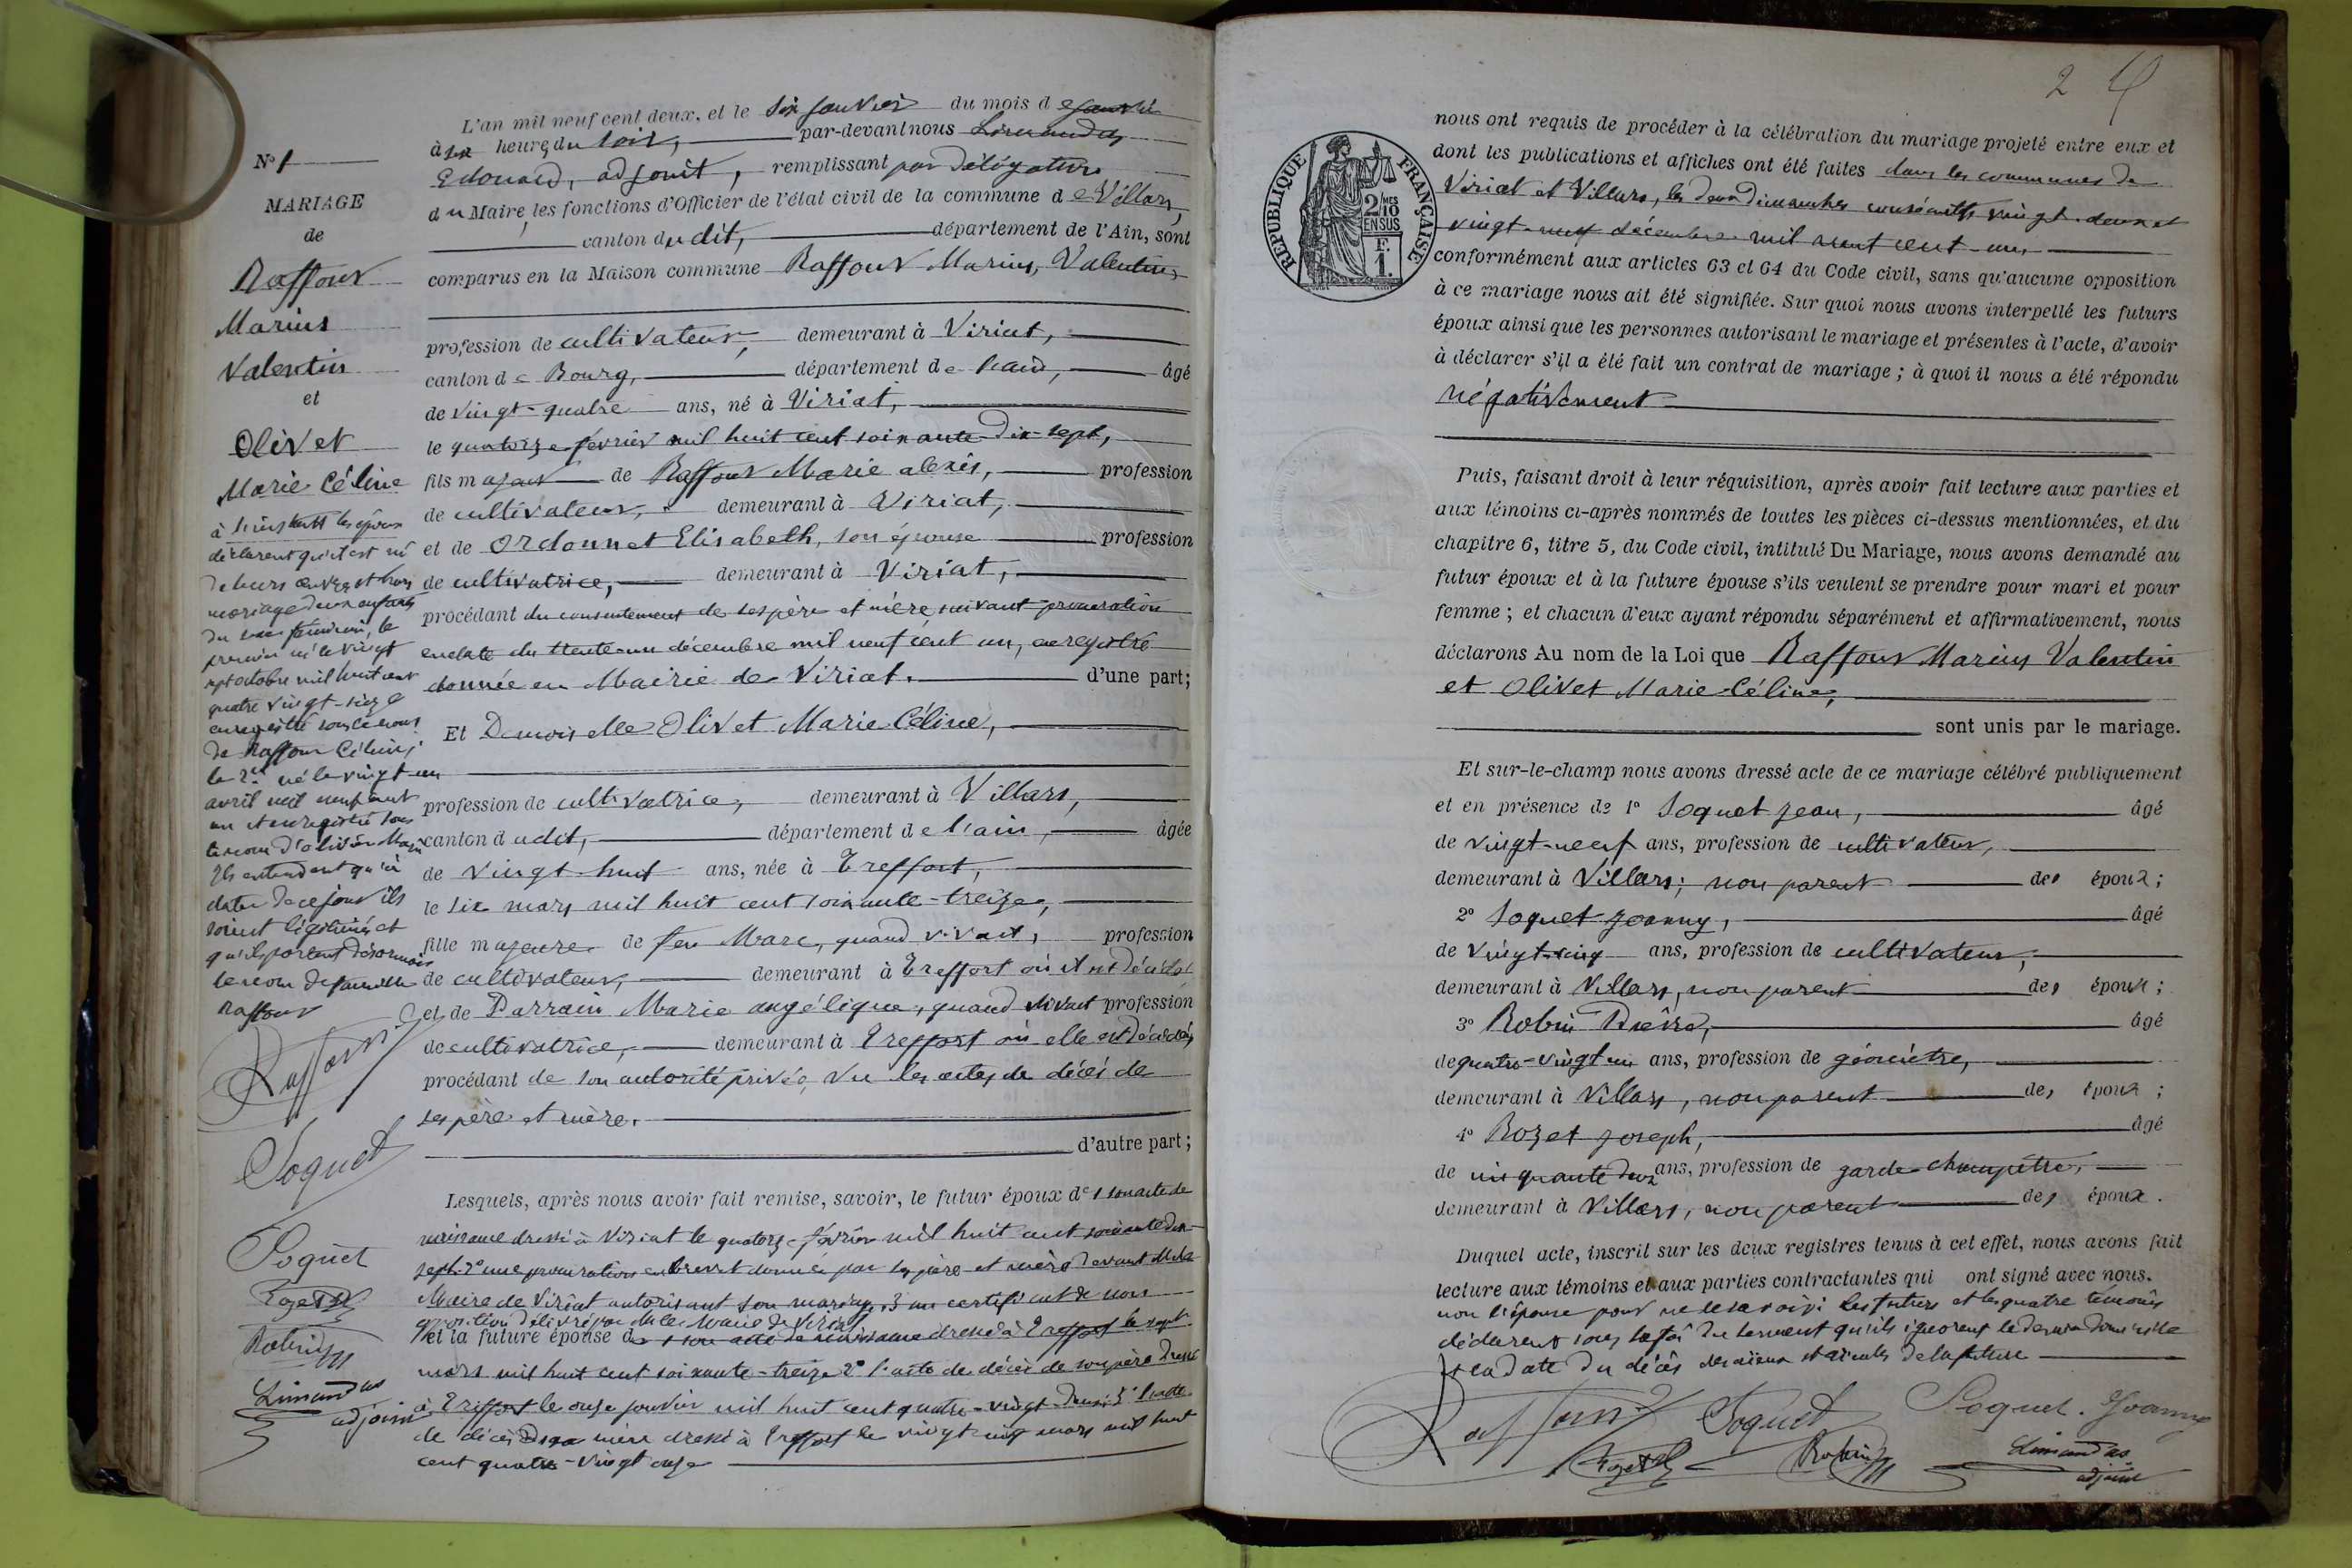 N° 1
MARIAGE
de
Raffour
Marius
Valentin
et
Olivet
Marie Céline
à l'instant les époux
déclarent qu'il est né
de leurs œuvres et hors
mariage deux enfants
du sexe féminin, le
premier né le vingt
sept octobre mil huit cent
quatre vingt-seize
enregistré sous le nom
de Raffour Céline;
le 2e né le vingt un
avril mil neuf cent
un et enregistré sous
le nom d'olivier Marie
Ils entendent qu'à
dater de ce jour ils
soient légitimés et
qu'ils portent désormais
le nom de famille
Raffour
Raffour
Soquet
Soquet
Rozet
Robin
Limandas
adjoint
L'an mil neuf cent deux, et le six janvier du mois de janvier
à six heures du soir, par-devant nous Limandas
Edouard, adjoint, remplissant par délégation
du Maire, les fonctions d'Officier de l'état civil de la commune de Villars,
canton du dit, département de l'Ain, sont
comparus en la Maison commune Raffour Marius, Valentin,
profession de cultivateur, demeurant à Viriat,
canton de Bourg, département de l'ain, âgé
de vingt-quatre ans, né à Viriat,
le quatorze février mil huit cent soixante-dix-sept,
fils majeur de Raffour Marie alexis, profession
de cultivateur, demeurant à Viriat,
et de Ordonnet Elisabeth, son épouse profession
de cultivatrice, demeurant à Viriat,
procédant du consentement de ses père et mère, suivant procuration
en date du trente-un décembre mil neuf cent un, enregistré
donnée en Mairie de Viriat. d'une part;
Et Demoiselle Olivet Marie Céline,
profession de cultivatrice, demeurant à Villars,
canton dudit, département de l'ain, âgée
de vingt-huit ans, née à Treffort,
le six mars mil huit cent soixante-treize,
fille majeure de feu Marc, quand vivait, profession
de cultivateur, demeurant à Treffort où il est décédé
et de Darrain Marie angélique, quand vivait profession
de cultivatrice, demeurant à Treffort où elle est décédée,
procédant de son autorité privée, vu les actes de décès de
ses père et mère.
d'autre part;
Lesquels, après nous avoir fait remise, savoir, le futur époux de 1 son acte de
naissance dressé à Viriat le quatorze février mil huit cent soixante dix-
sept. 2° une procuration en brevet donnée par ses père et mère devant M. le
Maire de Viriat autorisant son mariage, 3 un certificat de non
opposition délivré par M. le Maire de Viriat
et la future épouse de 1 son acte de naissance dressé à Treffort le sept
mars mil huit cent soixante-treize 2° l'acte de décès de son père dressé
à Treffort le onze janvier mil huit cent quatre-vingt- 3° l'acte
de décès de sa mère dressé à Treffort le vingt mars mil huit
cent quatre-vingt onze
2
RÉPUBLIQUE FRANÇAISE
2/10 MES
EN SUS
F.
1.
nous ont requis de procéder à la célébration du mariage projeté entre eux et
dont les publications et affiches ont été faites dans les communes de
Viriat et Villars, les deux dimanches consécutifs vingt-deux et
vingt-neuf décembre mil neuf cent un,
conformément aux articles 63 et 64 du Code civil, sans qu'aucune opposition
à ce mariage nous ait été signifiée. Sur quoi nous avons interpellé les futurs
époux ainsi que les personnes autorisant le mariage et présentes à l'acte, d'avoir
à déclarer s'il a été fait un contrat de mariage; à quoi il nous a été répondu
négativement
Puis, faisant droit à leur réquisition, après avoir fait lecture aux parties et
aux témoins ci-après nommés de toutes les pièces ci-dessus mentionnées, et du
chapitre 6, titre 5, du Code civil, intitulé Du Mariage, nous avons demandé au
futur époux et à la future épouse s'ils veulent se prendre pour mari et pour
femme; et chacun d'eux ayant répondu séparément et affirmativement, nous
déclarons Au nom de la Loi que Raffour Marius Valentin
et Olivet Marie Céline,
sont unis par le mariage.
Et sur-le-champ nous avons dressé acte de ce mariage célébré publiquement
et en présence de 1° Soquet Jean, âgé
de vingt-neuf ans, profession de cultivateur,
demeurant à Villars; non parent des époux;
2° Soquet Joanny, âgé
de vingt-cinq ans, profession de cultivateur,
demeurant à Villars, non parent des époux;
3° Robin Désiré, âgé
de quatre-vingt un ans, profession de géomètre,
demeurant à Villars, non parent des époux;
4° Rozet Joseph, âgé
de cinquante deux ans, profession de garde-champêtre,
demeurant à Villars, non parent des époux.
Duquel acte, inscrit sur les deux registres tenus à cet effet, nous avons fait
lecture aux témoins et aux parties contractantes qui ont signé avec nous.
non l'épouse pour ne le savoir; les futurs et les quatre témoins
déclarent sous la foi du serment qu'ils ignorent le dernier domicile
et la date du décès des aïeux et aïeules de la future
Raffour Soquet Soquet. Joanny
Rozet Robin Limandas
adjoint